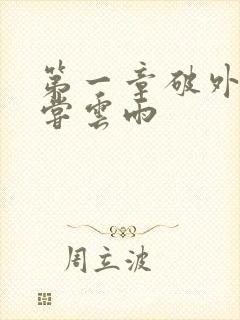 第一章破外
尝雲雨
周立波